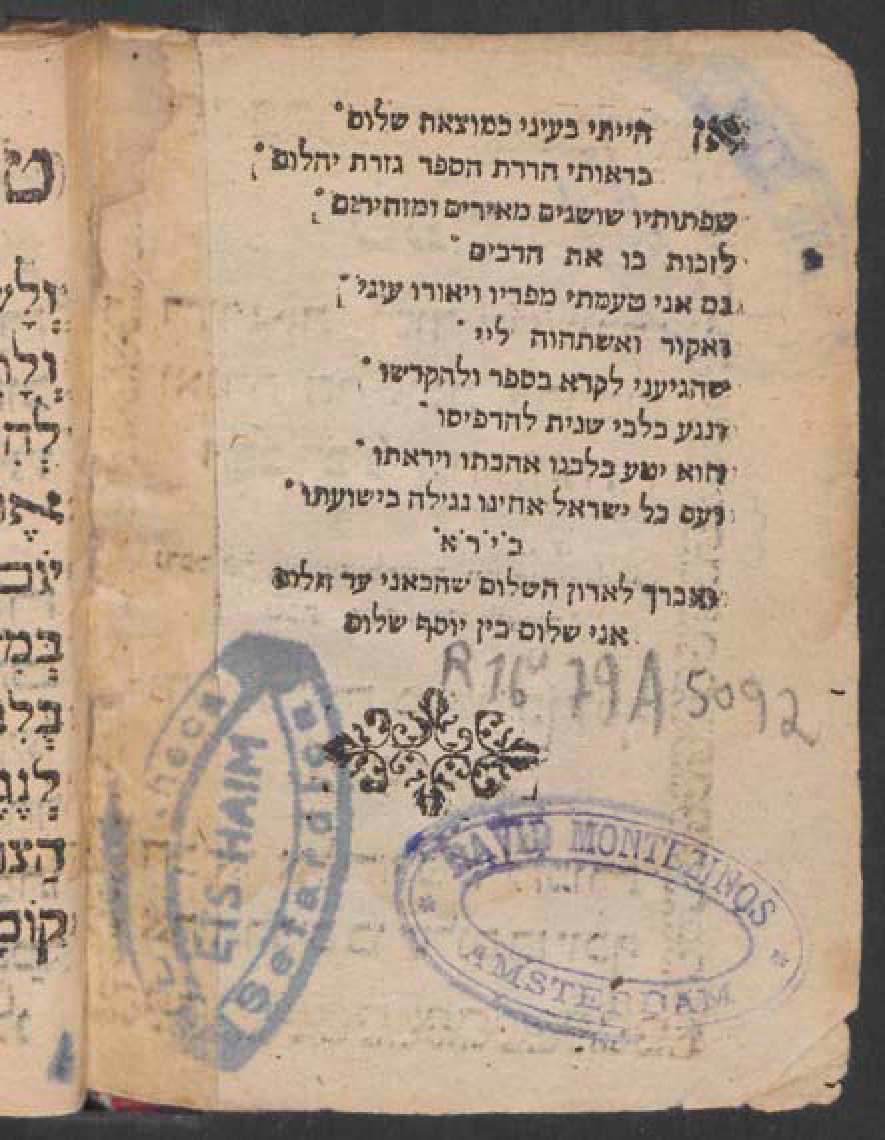 אז הייתי בעיני כמוצאת שלום
בראותי הדרת הספר גזרת יהלום
שפתותיו שושנים מאירים ומזהירים
לזכות בו את הרבים
גם אני טעמתי מפריו ויאורו עיני
ואקוד ואשתחוה ליי
שהגיעני לקרא בספר ולהקדשו
ונגע בלבי שנית להדפיסו
והוא יטע בלבנו אהבתו ויראתו
ועם כל ישראל אחינו נגילה בישועתו
כ'י'ר'א'
ואברך לארון השלום שהבאני עד הלום
אני שלום בין יוסף שלום
R 16 79A 5092
EIS HAIM
Sefardie
DAVID MONTEZINOS
AMSTERDAM
ט